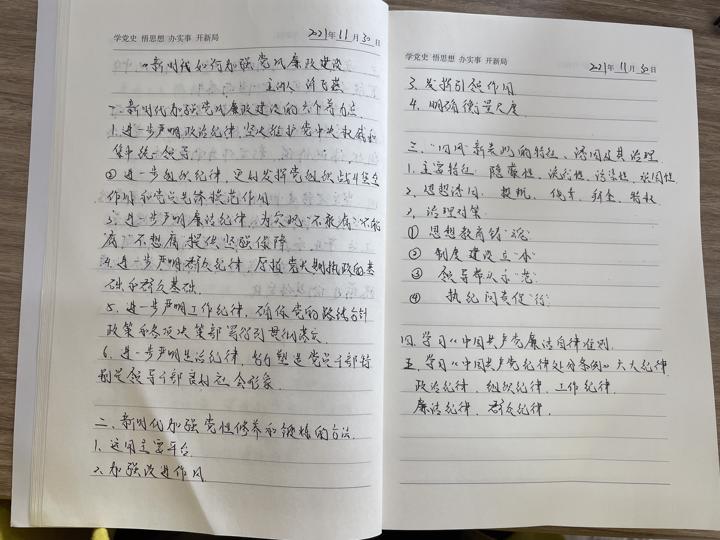 学党史 悟思想 办实事 开新局
2021年11月30日
新时代如何加强党风廉政建设
主讲人 许飞燕
一、新时代加强党风廉政建设的六个着力点
1.进一步严明政治纪律,坚决维护党中央权威和
集中统一领导
②进一步组织纪律,更好发挥党组织战斗堡垒
作用和党员先锋模范作用
3.进一步严明廉洁纪律,为实现“不敢腐”“不能
腐”“不想腐”提供坚强保障
4.进一步严明群众纪律,厚植党长期执政的基
础和群众基础.
5.进一步严明工作纪律,确保党的路线方针
政策和各项决策部署得到贯彻落实
6.进一步严明生活纪律,着力塑造党员干部特
别是领导干部良好社会形象.
二.新时代加强党性修养和锻炼的方法.
1.运用主要平台
2.加强改进作风
学党史 悟思想 办实事 开新局
2021年11月30日
3.发挥引领作用
4.明确衡量尺度.
三.“四风”新表现的特征、诱因及其治理
1.主要特征:隐蔽性、
2.思想诱因:投机、侥幸、利益、特权
3.治理对策
① 思想教育铸“魂”
② 制度建设立“本”
③ 领导带头示“范”
④ 执纪问责促“行”
四.学习《中国共产党廉洁自律准则》
五.学习《中国共产党纪律处分条例》六大纪律
政治纪律、组织纪律、工作纪律,
廉洁纪律、群众纪律,